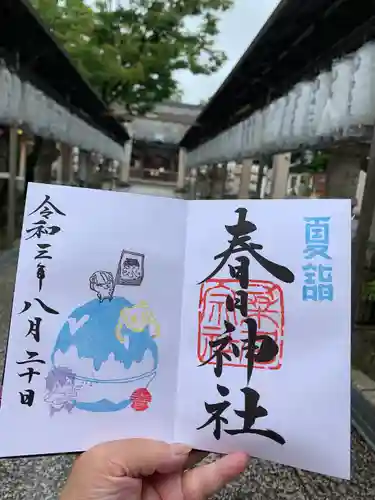 夏詣
春日神社
令和三年八月二十日